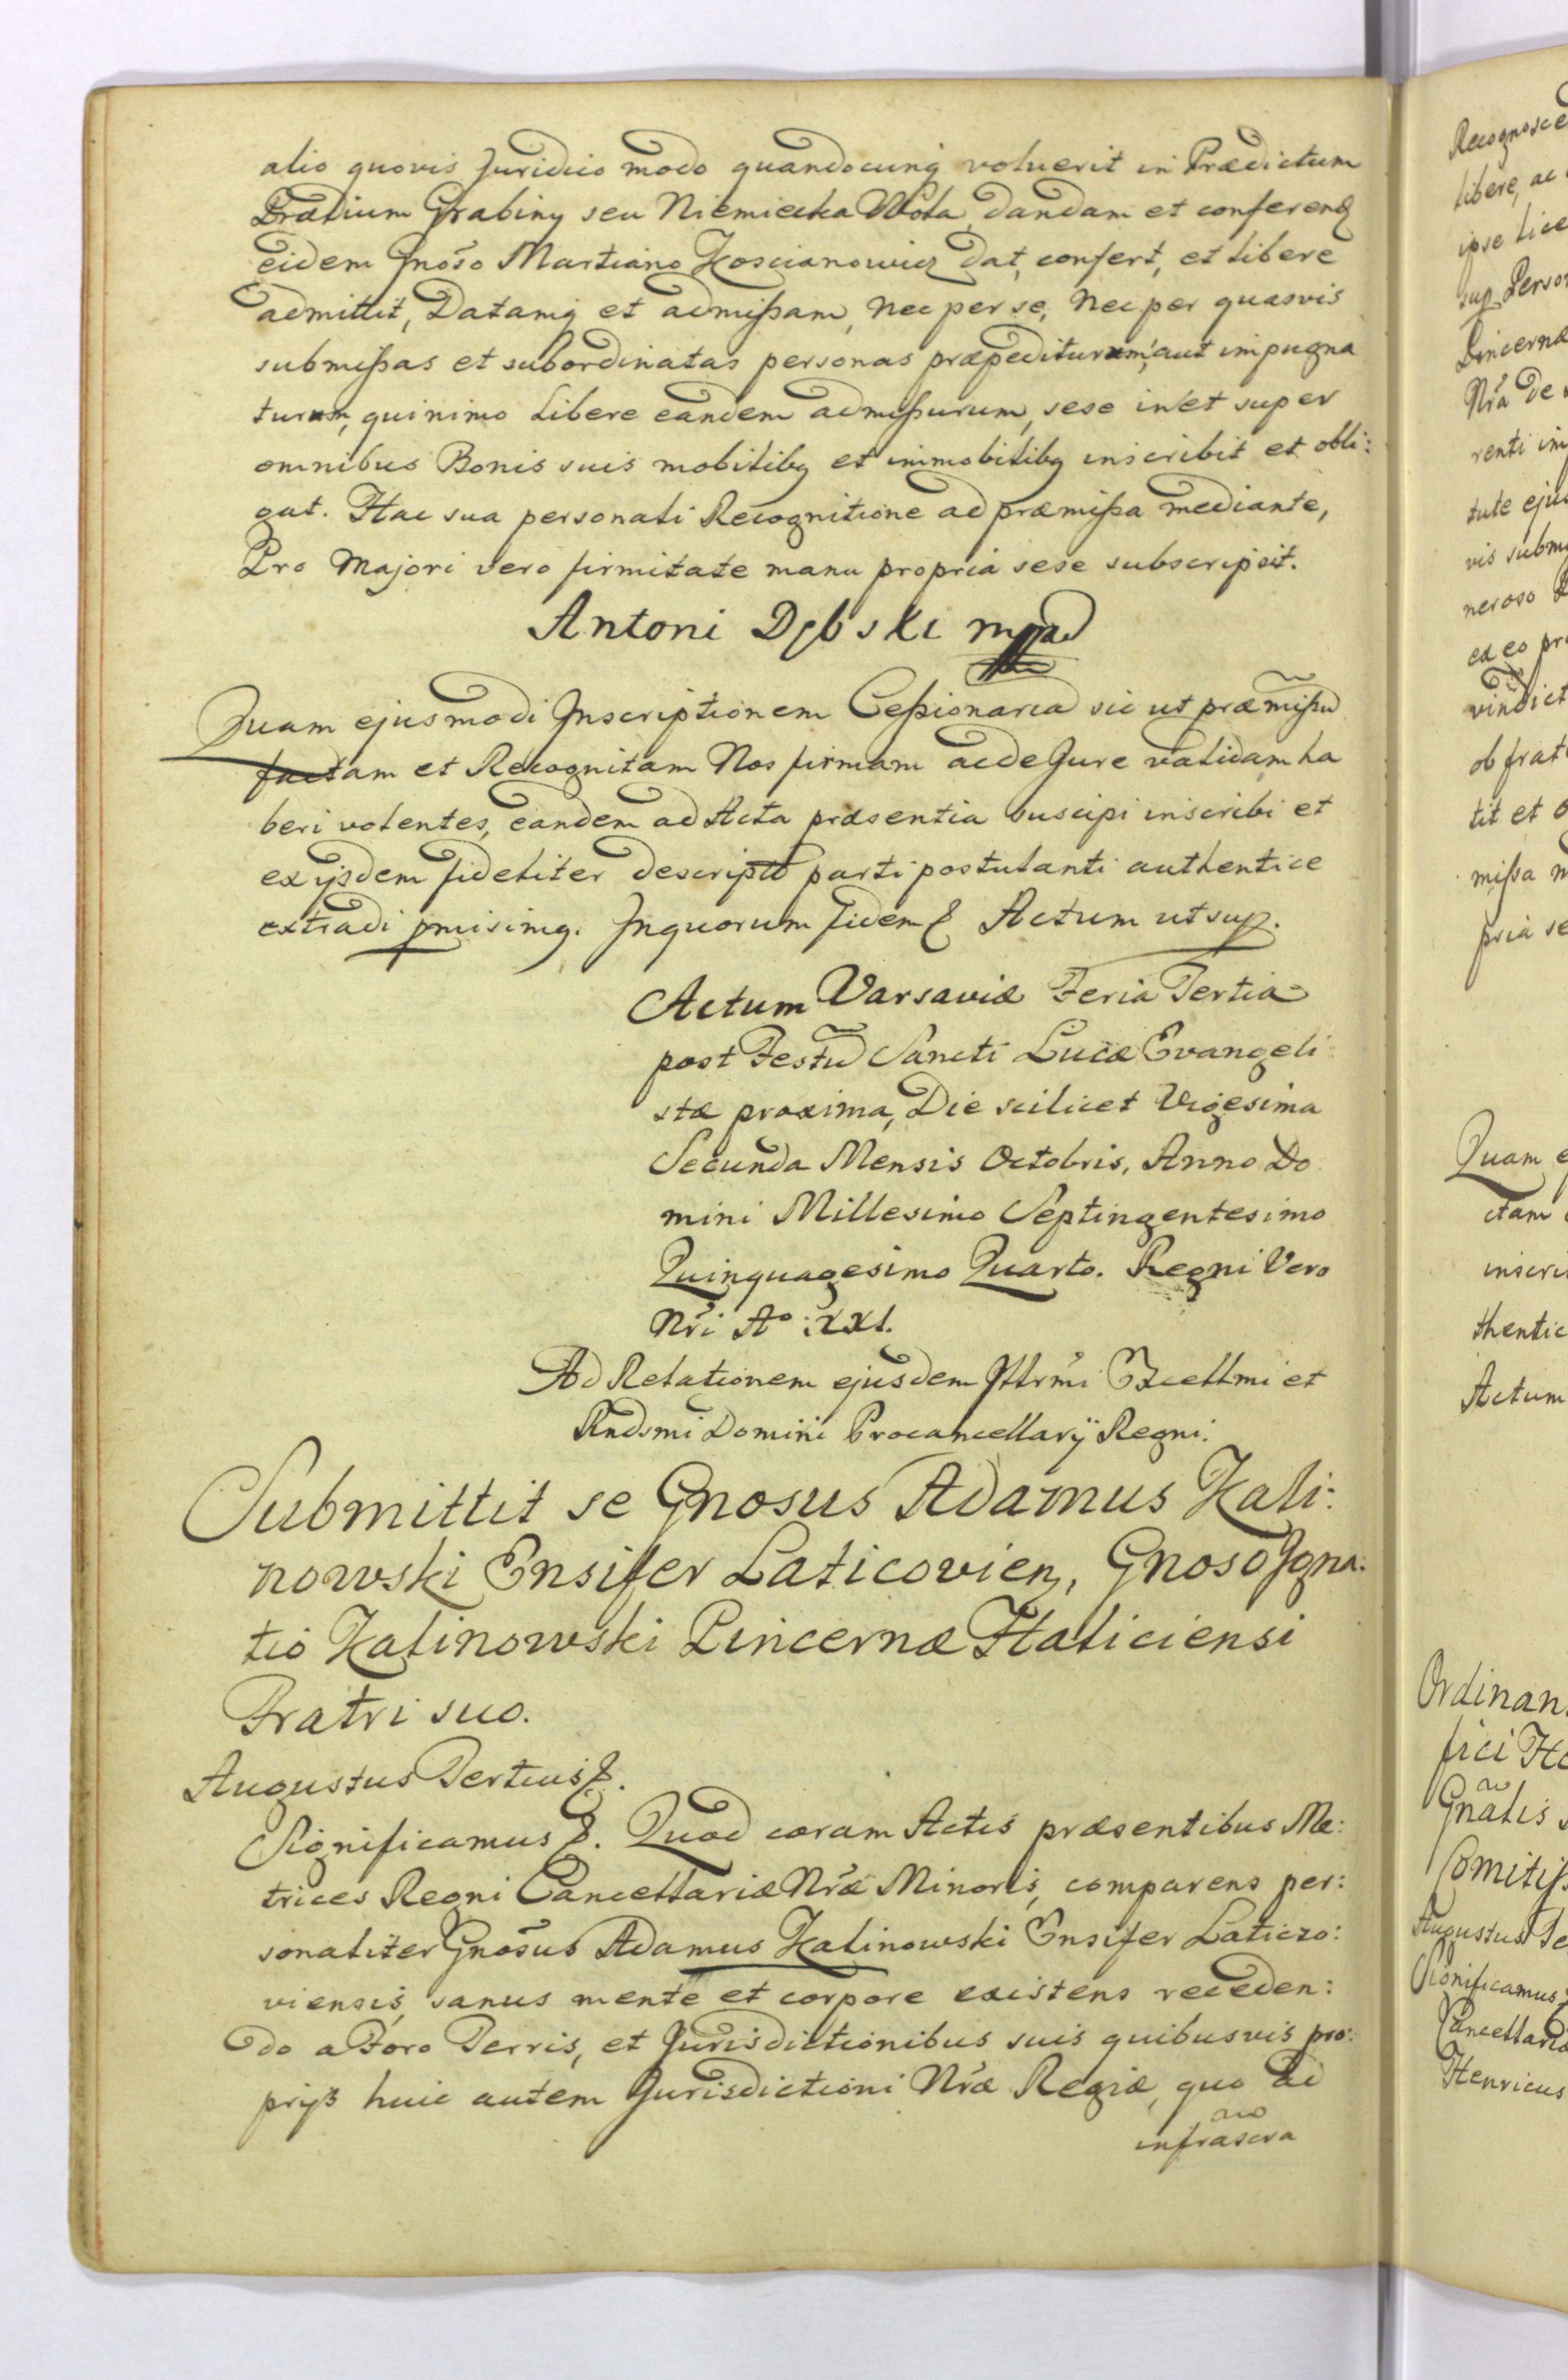 alio quovis Juridico modo quandocunq voluerit in Prædictum
Prædium Grabiny seu Niemiecka Wola, dandam et conferend
eidem Gnoso Martiano Koscianowicz dat, confert, et libere
admittit, Datamq et admißam, nec per se, nec per quasvis
submißas et subordinatas personas præpediturum, aut impugna
turum, quinimo Libere eandem admißurum, sese in et super
omnibus Bonis suis mobilibq et immobilibq inscribit et obli:
gat. Hac sua personali Recognitione ad præmißa mediante,
Pro Majori vero firmitate manu propria sese subscripsit.
Antoni Dębski mpp
Quam ejusmodi Inscriptionem Ceßionaria sic ut præmißu
factam et Recognitam Nos firmam ac de Jure validam ha
beri volentes, eandem ad Acta præsentia suscipi inscribi et
ex ijsdem fideliter descriptã parti postulanti authentice
extradi pmisimq. Inquorum fidem & Actum ut sup.
Actum Varsaviæ Feria Tertia
post Festu Sancti Lucæ Evangeli
stæ proxima, Die scilicet Vigesima
Secunda Mensis Octobris, Anno Do
mini Millesimo Septingentesimo
Quinquagesimo Quarto. Regni Vero
Nri Aº: XXI.
Ad Relationem ejusdem Illrmi Excellmi et
Rndsmi Domini Procancellarÿ Regni.
Submittit se Gnosus Adamus Kali:
nowski Ensifer Laticovien, Gnoso Igna:
tio Kalinowski Pincernæ Haliciensi
Fratri suo.
Augustus Tertius &.
Significamus &. Quod coram Actis præsentibus Me:
trices Regni Cancellariæ Nræ Minoris, comparens per:
sonaliter Gnosus Adamus Kalinowski Ensifer Laticzo:
viensis, sanus mente et corpore existens receden:
do a Foro Terris, et Jurisdictionibus suis quibusvis pro:
prijs huic autem Jurisdictioni Nræ Regiæ, quo ad
infrascra
Recognosce
libere, ac
ipse lice
sup Person
Pincernæ
Nra De
renti im
tute ejus
vis subm
neroso
ea eo pr
vindict
ob frat
tit et o
mißa m
pria se
Quam e
ctam
inscri
thentic
Actum
Ordinan
fici
Gnalis
Comitiß
Augustus Te
Significamus
Cancellaria
Henricus